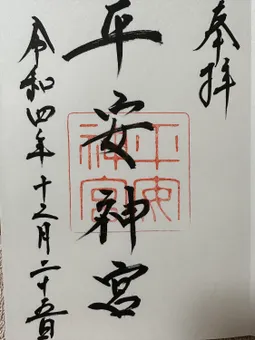 奉拝
平安神宮
平安
神宮
令和四年十二月二十五日